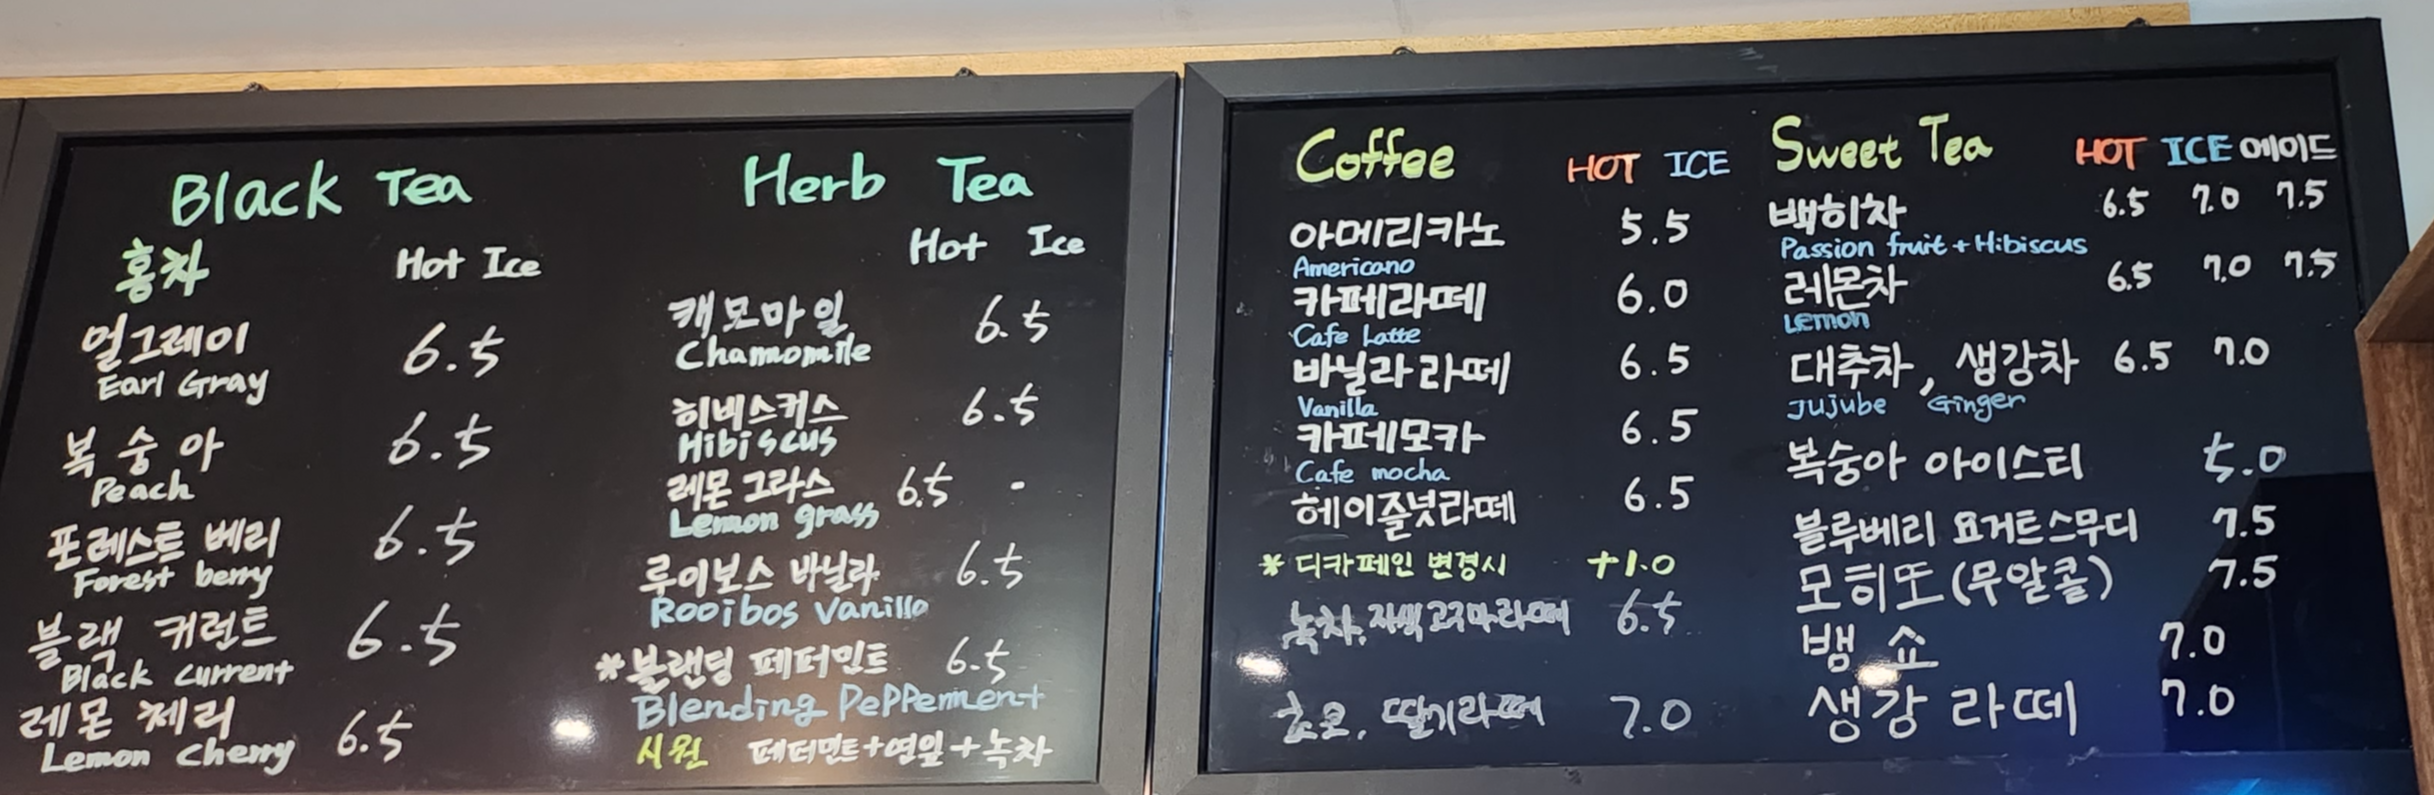 Black Tea
홍차 Hot Ice
얼그레이 6.5
Earl Gray
복숭아 6.5
Peach
포레스트 베리 6.5
Forest berry
블랙 커런트 6.5
Black current
레몬 체리 6.5
Lemon Cherry
Herb Tea
Hot Ice
캐모마일 6.5
Chamomile
히비스커스 6.5
Hibiscus
레몬그라스 6.5 -
Lemon grass
루이보스 바닐라 6.5
Rooibos Vanilla
*블랜딩 페퍼민트 6.5
Blending Pepperment
시원 페퍼민트+연잎+녹차
Coffee HOT ICE
아메리카노 5.5
Americano
카페라떼 6.0
Cafe Latte
바닐라 라떼 6.5
Vanilla
카페모카 6.5
Cafe mocha
헤이즐넛라떼 6.5
* 디카페인 변경시 +1.0
녹차, 자색고구마라떼 6.5
초코, 딸기라떼 7.0
Sweet Tea HOT ICE 에이드
백히차 6.5 7.0 7.5
Passion fruit + Hibiscus
레몬차 6.5 7.0 7.5
Lemon
대추차, 생강차 6.5 7.0
Jujube Ginger
복숭아 아이스티 5.0
블루베리 요거트스무디 7.5
모히또(무알콜) 7.5
뱅 쇼 7.0
생강 라떼 7.0